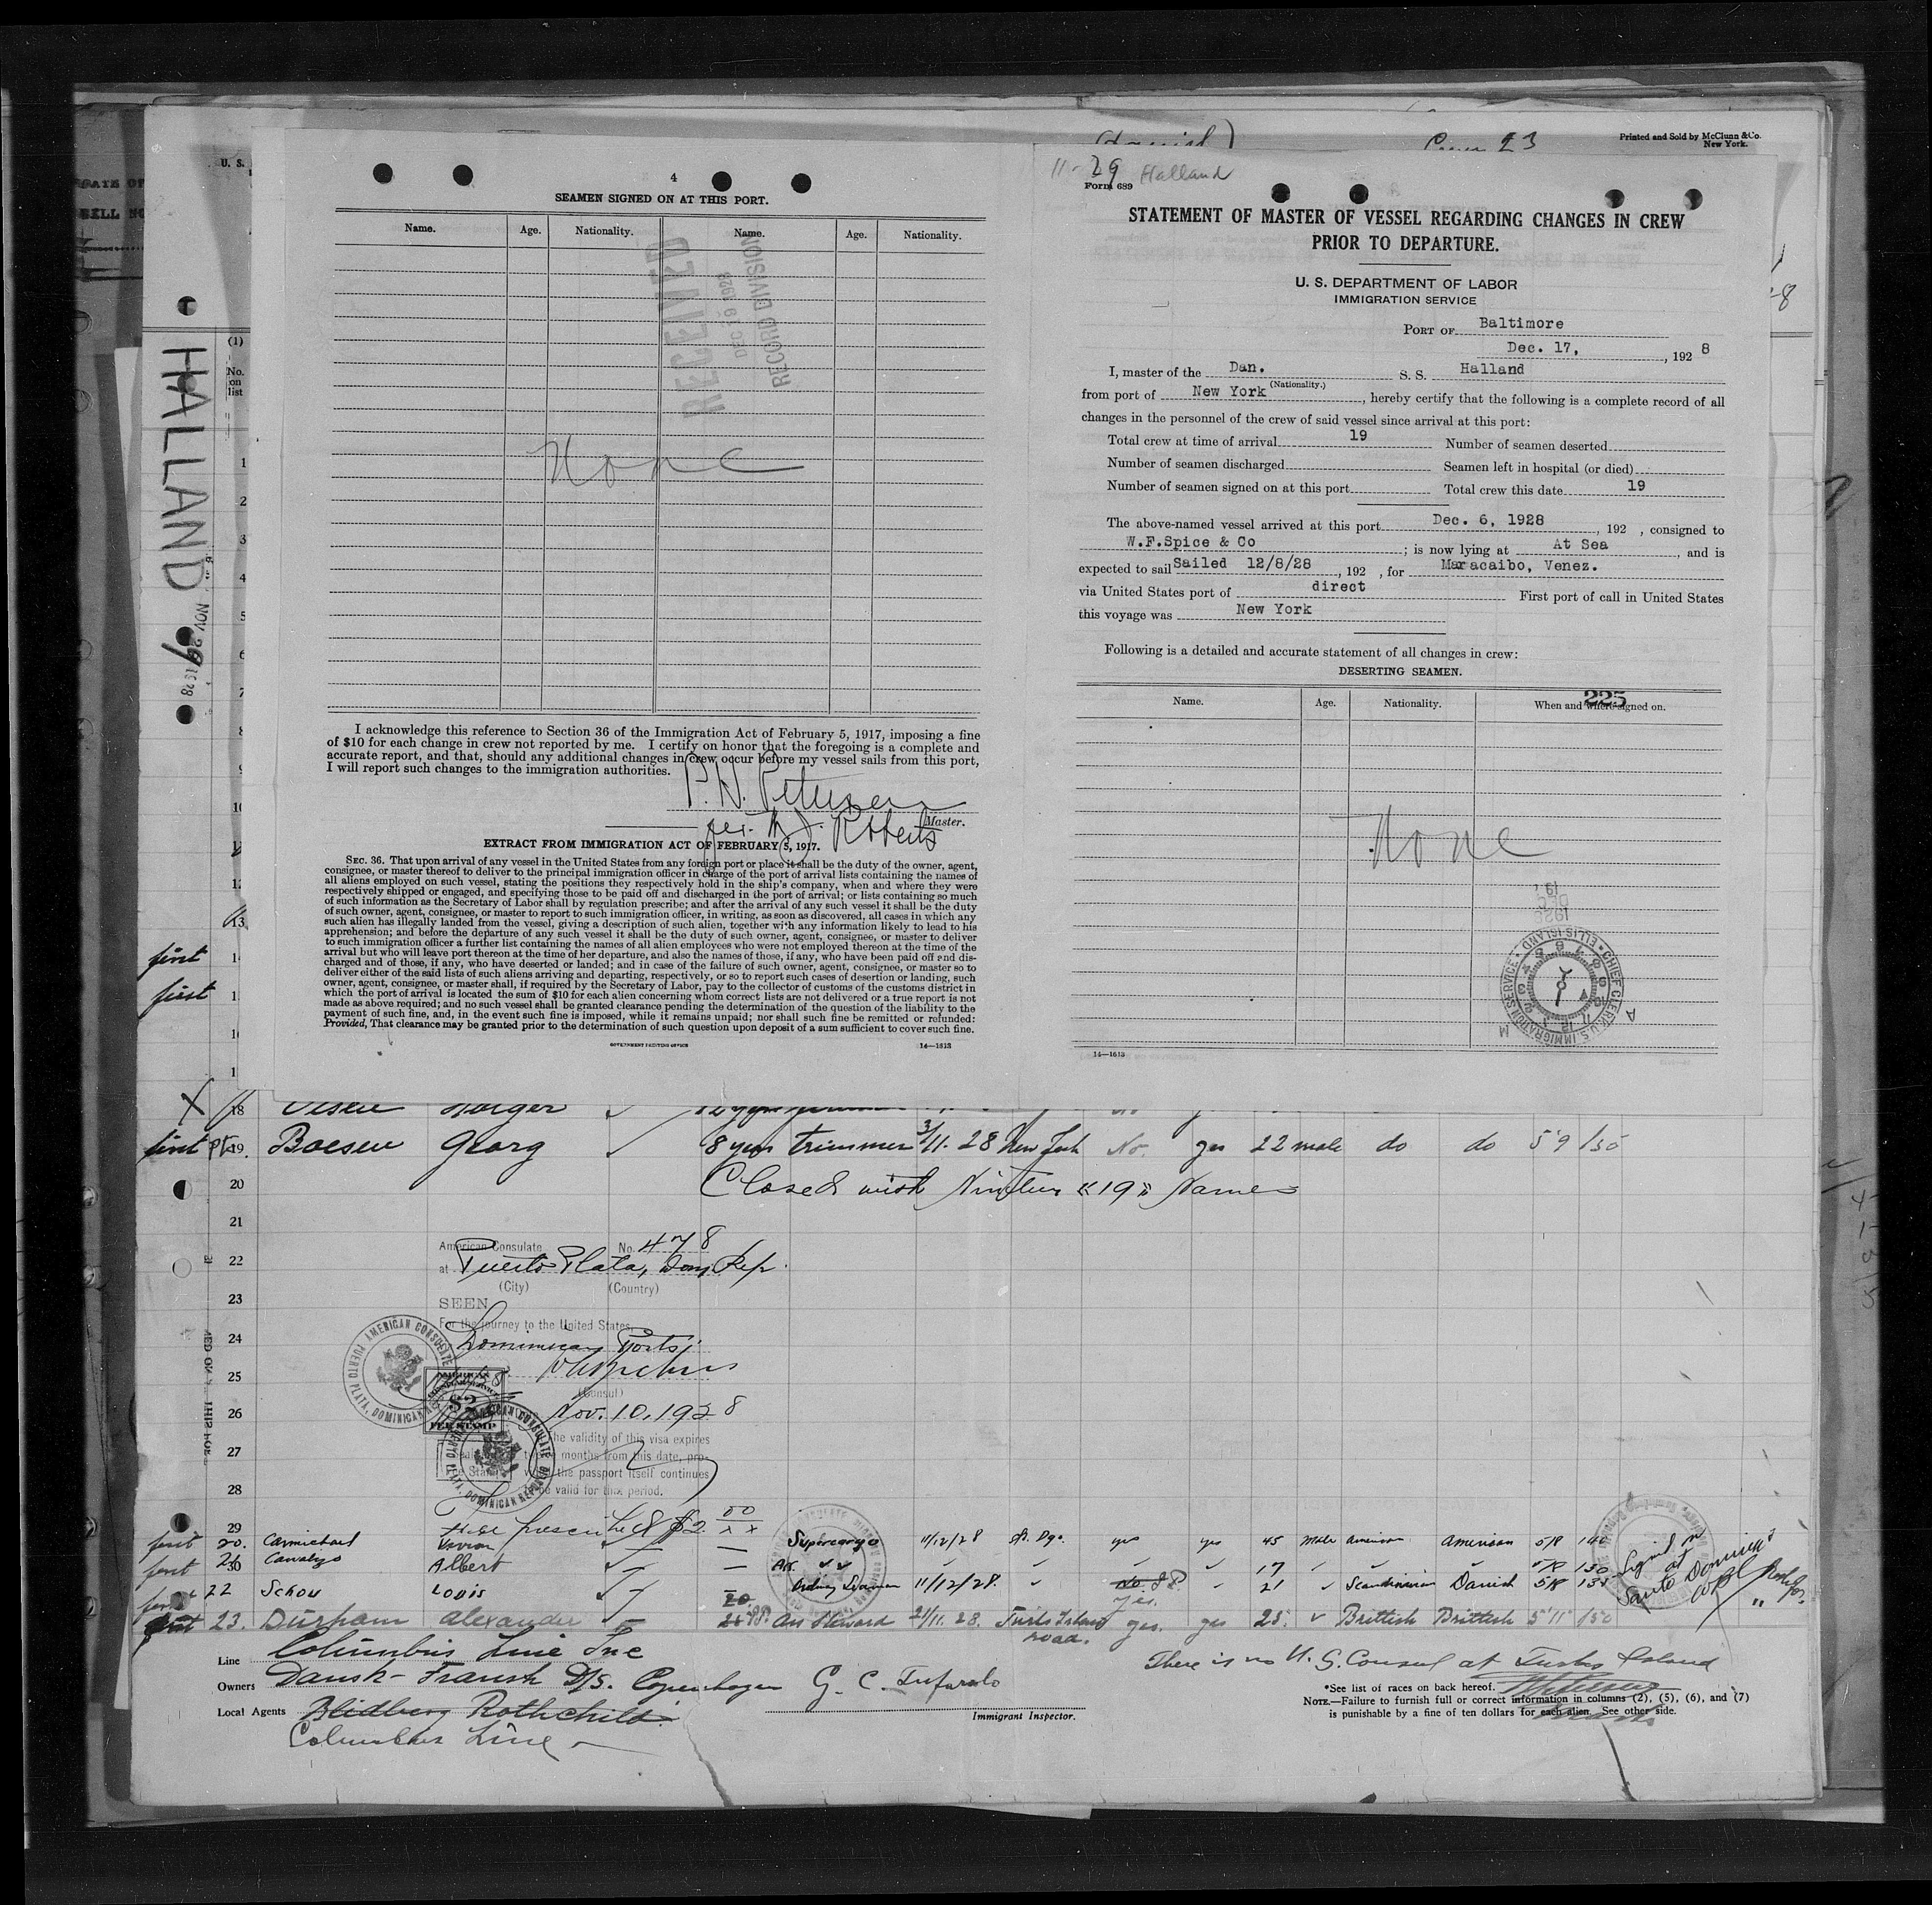 Printed and Sold by McClunn & Co.
New York.
(Danish)
Crew 23
U. S.
(1)
No.
on
list
HALLAND
NOV 29 1928
4
SEAMEN SIGNED ON AT THIS PORT.
Name. Age. Nationality. Name. Age. Nationality.
RECEIVED
DEC 19 1928
RECORD DIVISION
None
I acknowledge this reference to Section 36 of the Immigration Act of February 5, 1917, imposing a fine
of $10 for each change in crew not reported by me. I certify on honor that the foregoing is a complete and
accurate report, and that, should any additional changes in crew occur before my vessel sails from this port,
I will report such changes to the immigration authorities.
P. N. Petersen
Master.
per. Roberts
EXTRACT FROM IMMIGRATION ACT OF FEBRUARY 5, 1917.
SEC. 36. That upon arrival of any vessel in the United States from any foreign port or place it shall be the duty of the owner, agent,
consignee, or master thereof to deliver to the principal immigration officer in charge of the port of arrival lists containing the names of
all aliens employed on such vessel, stating the positions they respectively hold in the ship's company, when and where they were
respectively shipped or engaged, and specifying those to be paid off and discharged in the port of arrival; or lists containing so much
of such information as the Secretary of Labor shall by regulation prescribe; and after the arrival of any such vessel it shall be the duty
of such owner, agent, consignee, or master to report to such immigration officer, in writing, as soon as discovered, all cases in which any
such alien has illegally landed from the vessel, giving a description of such alien, together with any information likely to lead to his
apprehension; and before the departure of any such vessel it shall be the duty of such owner, agent, consignee, or master to deliver
to such immigration officer a further list containing the names of all alien employees who were not employed thereon at the time of the
arrival but who will leave port thereon at the time of her departure, and also the names of those, if any, who have been paid off and dis-
charged and of those, if any, who have deserted or landed; and in case of the failure of such owner, agent, consignee, or master so to
deliver either of the said lists of such aliens arriving and departing, respectively, or so to report such cases of desertion or landing, such
owner, agent, consignee, or master, shall, if required by the Secretary of Labor, pay to the collector of customs of the customs district in
which the port of arrival is located the sum of $10 for each alien concerning whom correct lists are not delivered or a true report is not
made as above required; and no such vessel shall be granted clearance pending the determination of the question of the liability to the
payment of such fine, and, in the event such fine is imposed, while it remains unpaid; nor shall such fine be remitted or refunded:
Provided, That clearance may be granted prior to the determination of such question upon deposit of a sum sufficient to cover such fine.
GOVERNMENT PRINTING OFFICE 14—1613
11-29 Halland
Form 689
STATEMENT OF MASTER OF VESSEL REGARDING CHANGES IN CREW
PRIOR TO DEPARTURE.
U. S. DEPARTMENT OF LABOR
IMMIGRATION SERVICE
PORT OF Baltimore
Dec. 17, , 192 8
I, master of the Dan. S. S. Halland
(Nationality.)
from port of New York , hereby certify that the following is a complete record of all
changes in the personnel of the crew of said vessel since arrival at this port:
Total crew at time of arrival 19 Number of seamen deserted
Number of seamen discharged Seamen left in hospital (or died)
Number of seamen signed on at this port Total crew this date 19
The above-named vessel arrived at this port Dec. 6, 1928 , 192 , consigned to
W.F.Spice & Co ; is now lying at At Sea , and is
expected to sail Sailed 12/8/28 , 192 , for Maracaibo, Venez.
via United States port of direct First port of call in United States
this voyage was New York
Following is a detailed and accurate statement of all changes in crew:
DESERTING SEAMEN.
225
Name. Age. Nationality. When and where signed on.
None
19
DEC
1928
CHIEF CLERK U.S. IMMIGRATION SERVICE • ELLIS ISLAND •
A M
14—1613
first
first
18 Olsen Holger
first Pt. 19. Boesen Georg 8 yrs trimmer 3/11. 28 New York No. yes 22 male do do 5'9 150
20 Closed with Nineteen "19" Names
21
22
23
24
25
26
27
28
29
30
American Consulate No. 478
at Puerto Plata, Dom. Rep.
(City) (Country)
SEEN
For the journey to the United States,
Dominican Ports
(Consul)
Nov. 10, 1928
The validity of this visa expires
months from this date, pro-
the passport itself continues
be valid for this period.
AMERICAN CONSULATE
PUERTO PLATA, DOMINICAN REPUBLIC
AMERICAN
$2
FEE STAMP
Fee prescribed $2.00
first 20. Carmichael Supercargo 11/12/28 St. Dgo. yes yes 45 male American American 5/8 140
first 21 Albert 17 150
first 22 Schou Louis Ordinary Seaman 11/12/28. No yes. 21 Scandinavian Danish 5/8 135
first 23. Durham Alexander Ass Steward 21/11. 28. Turks Island road. yes. yes 25. Brittish Brittish 5'11" 150
Signed on at Santo Domingo
Line Columbus Line Inc
Owners Dansk-Fransk D/S. Copenhagen
Local Agents Blidberg Rothchild
Columbus Line
G. C. Tufarolo
Immigrant Inspector.
There is no U. S. Consul at Turks Island
*See list of races on back hereof.
NOTE.—Failure to furnish full or correct information in columns (2), (5), (6), and (7)
is punishable by a fine of ten dollars for each alien. See other side.